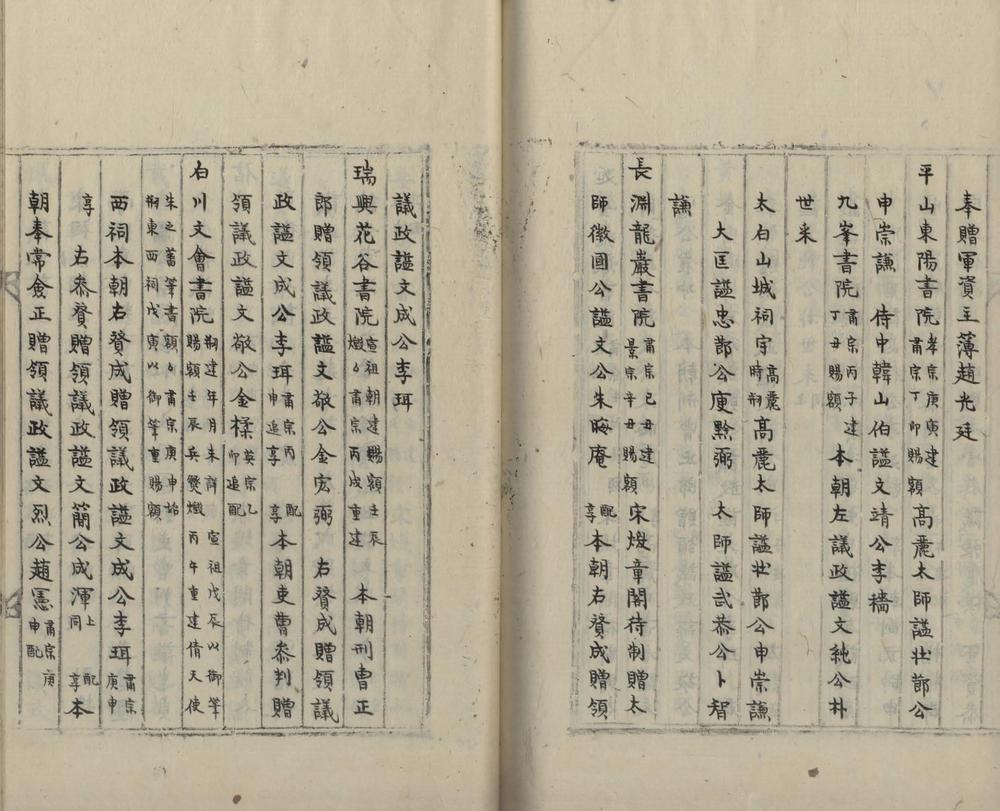 奉贈軍資主薄趙光廷
平山東陽書院孝宗庚寅建肅宗丁卯賜額高麗太師謚壯節公
申崇謙　侍中韓山伯謚文靖公李穡
九峯書院肅宗丙子建丁丑賜額　本朝左議政謚文純公朴
世采
太白山城祠宇高麗時刱高麗太師謚壯節公申崇謙
大匡謚忠節公庾黔弼　太師謚武恭公卜智
謙
長淵龍巖書院肅宗己丑建景宗辛丑賜額宋煥章閣待制贈太
師徽國公謚文公朱晦庵　配享本朝右贊成贈領
議政謚文成公李珥
瑞興花谷書院宣祖朝建賜額壬辰燬肅宗丙戌重建　本朝刑曹正
郎贈領議政謚文敬公金宏弼　右贊成贈領議
政謚文成公李珥肅宗丙申追享　配享本朝吏曹叅判贈
領議政謚文敬公金楺英宗乙卯追配
白川文會書院刱建年月未詳　宣祖戊辰以御筆賜額壬辰兵燹燬丙午重建倩天使
朱之蕃筆書額肅宗庚申始刱東西祠戊寅以御筆重賜額
西祠本朝右贊成贈領議政謚文成公李珥肅宗庚申
享　右叅贊贈領議政謚文簡公成渾上同　配享本
朝奉常僉正贈領議政謚文烈公趙憲肅宗庚申配